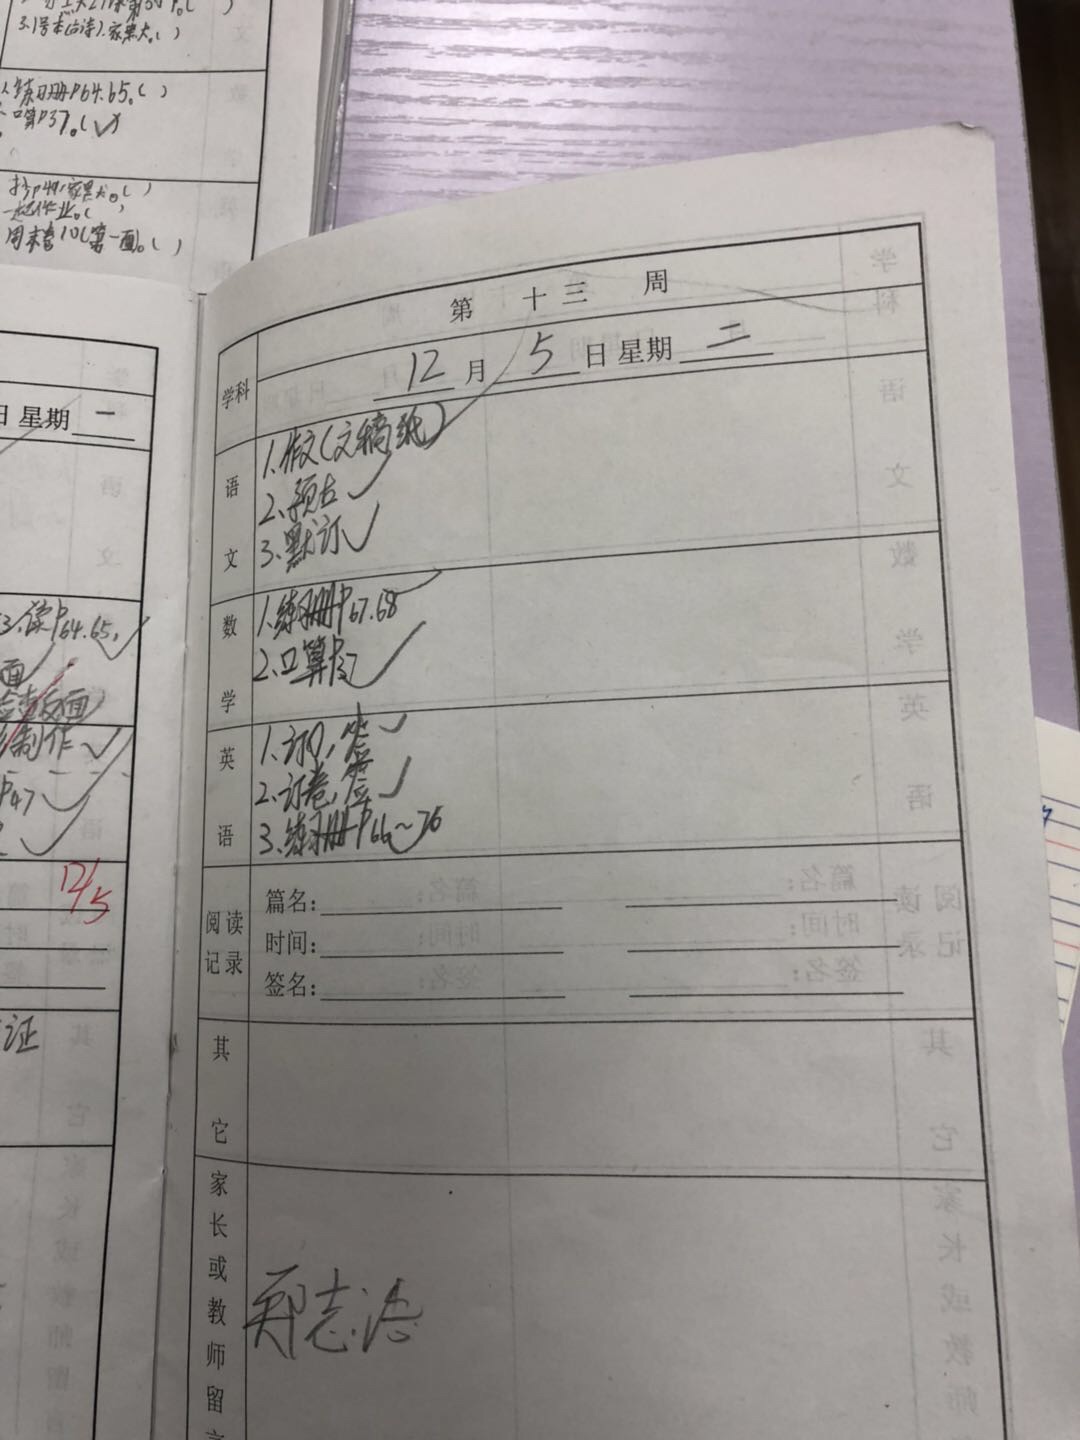 3.1号本(古诗).家默大。( )
练习册P64.65。( )
口算P37。(✓)
一起作业。( )
周末卷10(第一面)。( )
日 星期 一
3.读P64.65.
面
制作
P47
12/5
证
第 十三 周
学科
12 月 5 日 星期 二
语文
1.作文(文稿纸)
2.预古
3.默订
数学
1.练习册P67.68
2.口算P37
英语
1.订,签
2.订卷,签
3.练习册P66~76
阅读记录
篇名:
时间:
签名:
其它
家长或教师留言
郑志浩